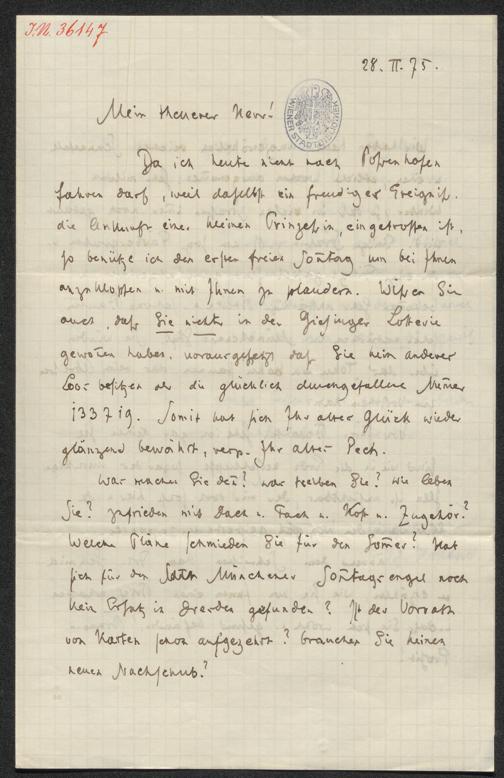 J.N. 36147
28. II. 75.
WIENER STADTBIBLIOTHEK
Mein theuerer Herr!
Da ich heute nicht nach Possenhofen
fahren darf, weil daselbst ein freudiges Ereigniß,
die Ankunft einer kleinen Prinzessin, eingetroffen ist,
so benütze ich den ersten freien Sonntag um bei Ihnen
anzuklopfen u. mit Ihnen zu plaudern. Wissen Sie
auch, daß Sie nichts in der Giesinger Lotterie
gewonnen haben, vorausgesetzt daß Sie kein anderes
Loos besitzen als die glücklich durchgefallene Numer
133719. Somit hat sich Ihr altes Glück wieder
glänzend bewährt, resp. Ihr altes Pech.
Was machen Sie denn? was treiben Sie? wie leben
Sie? zufrieden mit Dach u. Fach u. Kost u. Zugehör?
Welche Pläne schmieden Sie für den Sommer? Hat
sich für den Münchener Sonntagsengel noch
kein Ersatz in Dresden gefunden? Ist der Vorrath
von Karten schon aufgezehrt? brauchen Sie keinen
neuen Nachschub?